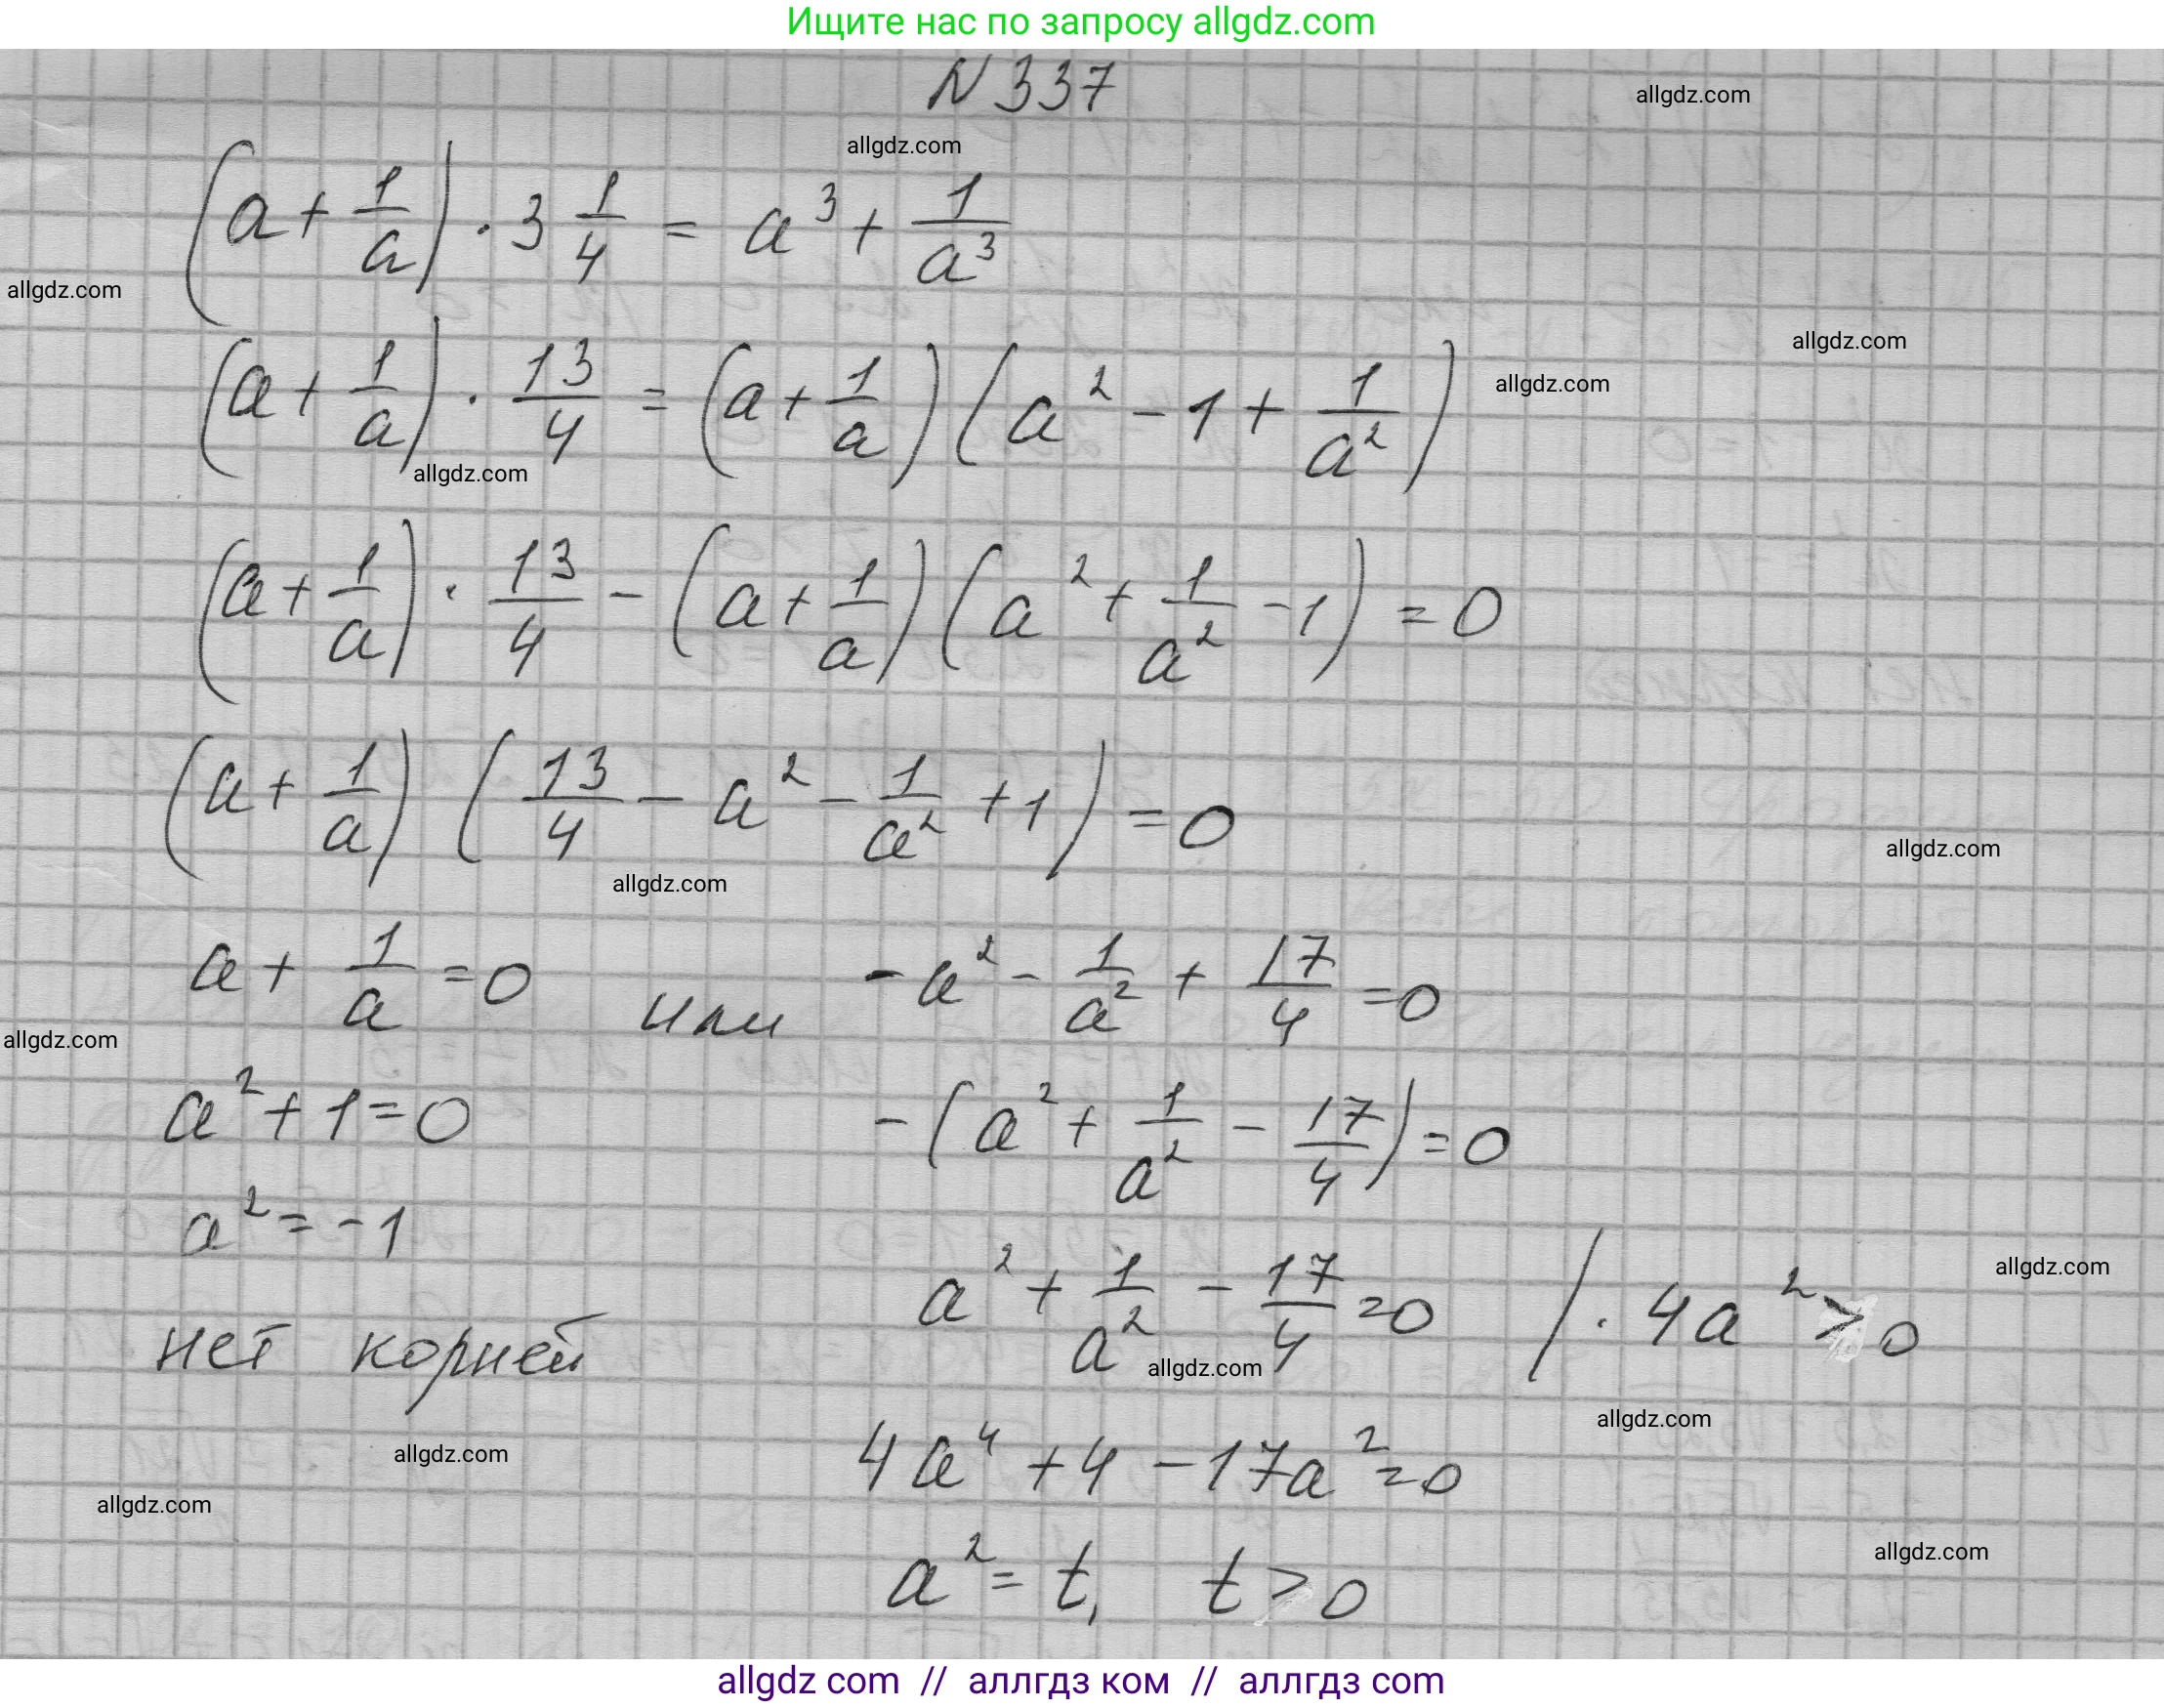 Ищите нас по запросу allgdz.com
N 337
allgdz.com
allgdz.com
(a + 1/a) · 3 1/4 = a³ + 1/a³
allgdz.com
allgdz.com
(a + 1/a) · 13/4 = (a + 1/a) (a² - 1 + 1/a²)
allgdz.com
allgdz.com
(a + 1/a) · 13/4 - (a + 1/a) (a² + 1/a² - 1) = 0
(a + 1/a) (13/4 - a² - 1/a² + 1) = 0
allgdz.com
allgdz.com
a + 1/a = 0 или -a² - 1/a² + 17/4 = 0
allgdz.com
a² + 1 = 0 -(a² + 1/a² - 17/4) = 0
a² = -1
allgdz.com
нет корней a² + 1/a² - 17/4 = 0 / · 4a² > 0
allgdz.com
allgdz.com
allgdz.com
4a⁴ + 4 - 17a² = 0
allgdz.com
allgdz.com
a² = t, t > 0
allgdz com // аллгдз ком // аллгдз com